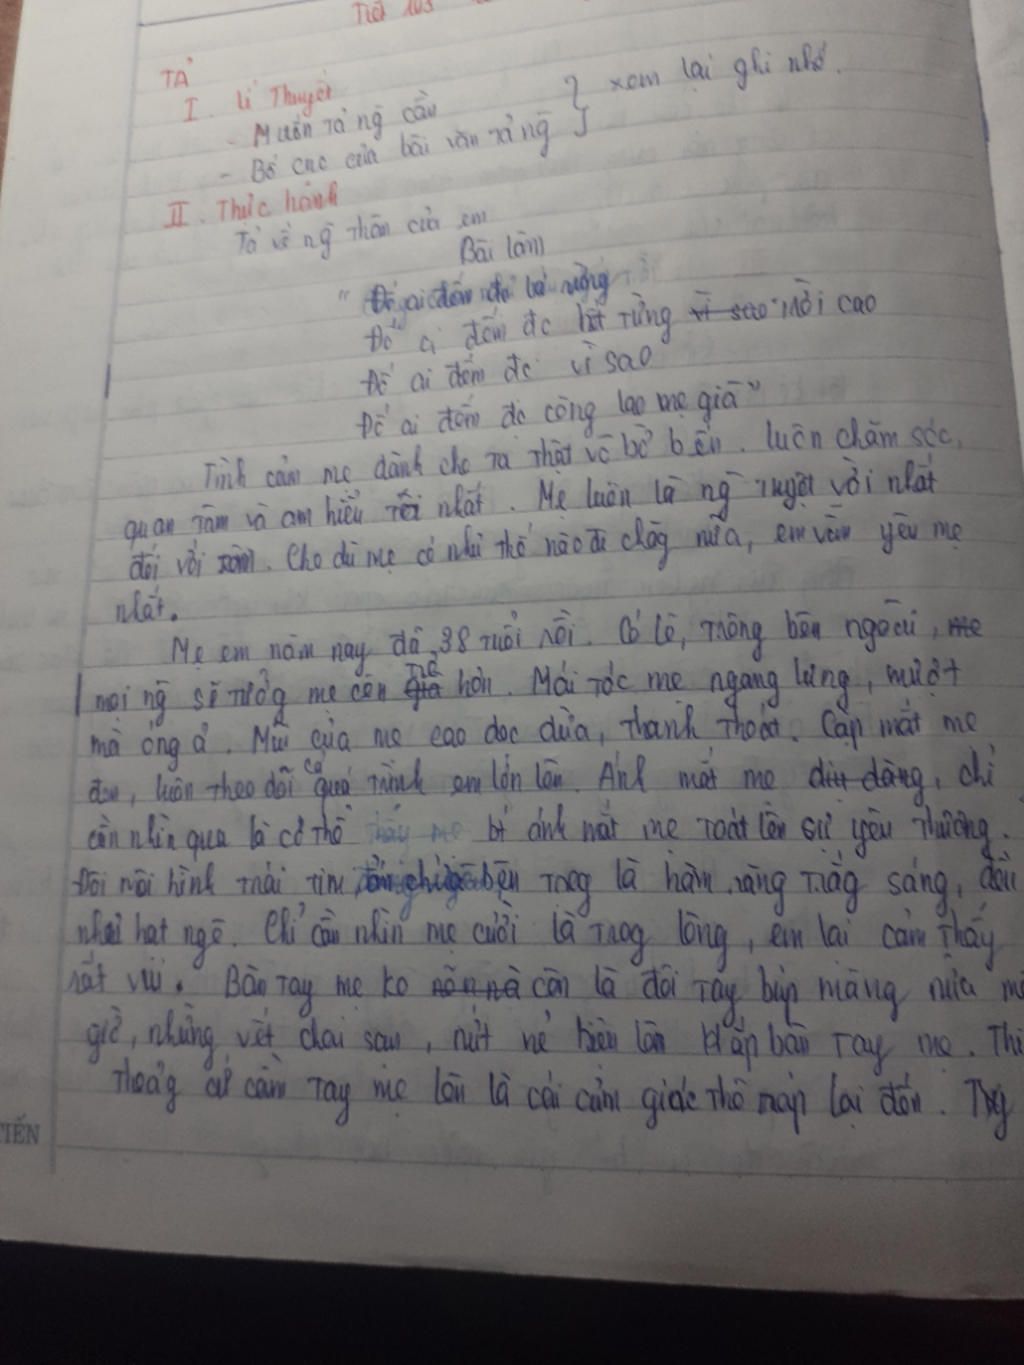 Tiết 103
TẢ
I. Lí Thuyết
- Muốn Tả ng̃ cần } xem lại ghi nhớ.
- Bố cục của bài văn tả ng̃
II. Thực hành
Tả về ng̃ thân của em
Bài làm
" Đố ai đếm đc lá rừng
Đố ai đếm đc hết Từng vì sao Trời cao
Đố ai đếm đc vì sao
Đố ai đếm đc công lao mẹ già"
Tình cảm mẹ dành cho ta thật vô bờ bến. luôn chăm sóc,
quan tâm và am hiểu nhất. Mẹ luôn là ng̃ tuyệt vời nhất
đối với. Cho dù mẹ có như thế nào đi chăg nữa, em vẫn yêu mẹ
nhất.
Mẹ em năm nay đã 38 tuổi rồi. Có lẽ, trông bên ngoài, mẹ
mọi ng̃ sẽ tưởg mẹ còn trẻ hơn. Mái tóc mẹ ngang lưng, mượt
mà óng ả. Mũi của mẹ cao dọc dừa, thanh thoát. Cặp mắt mẹ
đen, luôn theo dõi cả quá trình em lớn lên. Ánh mắt mẹ dịu dàng, chỉ
cần nhìn qua là có thể thấy mẹ bt ánh mắt mẹ toát lên sự yêu thương.
Đôi môi hình trái tim, bên trog là hàm răng trắg sáng, đều
như hạt ngô. Chỉ cần nhìn mẹ cười là trog lòng, em lại cảm thấy
rất vui. Bàn tay mẹ ko còn là đôi tay búp măng nữa mà
giờ, những vết chai sạn, nứt nẻ hiện lên khắp bàn tay mẹ. Thi
Thoảg cứ cầm tay mẹ lên là cái cảm giác thô ráp lại đến. Trog
TIẾN